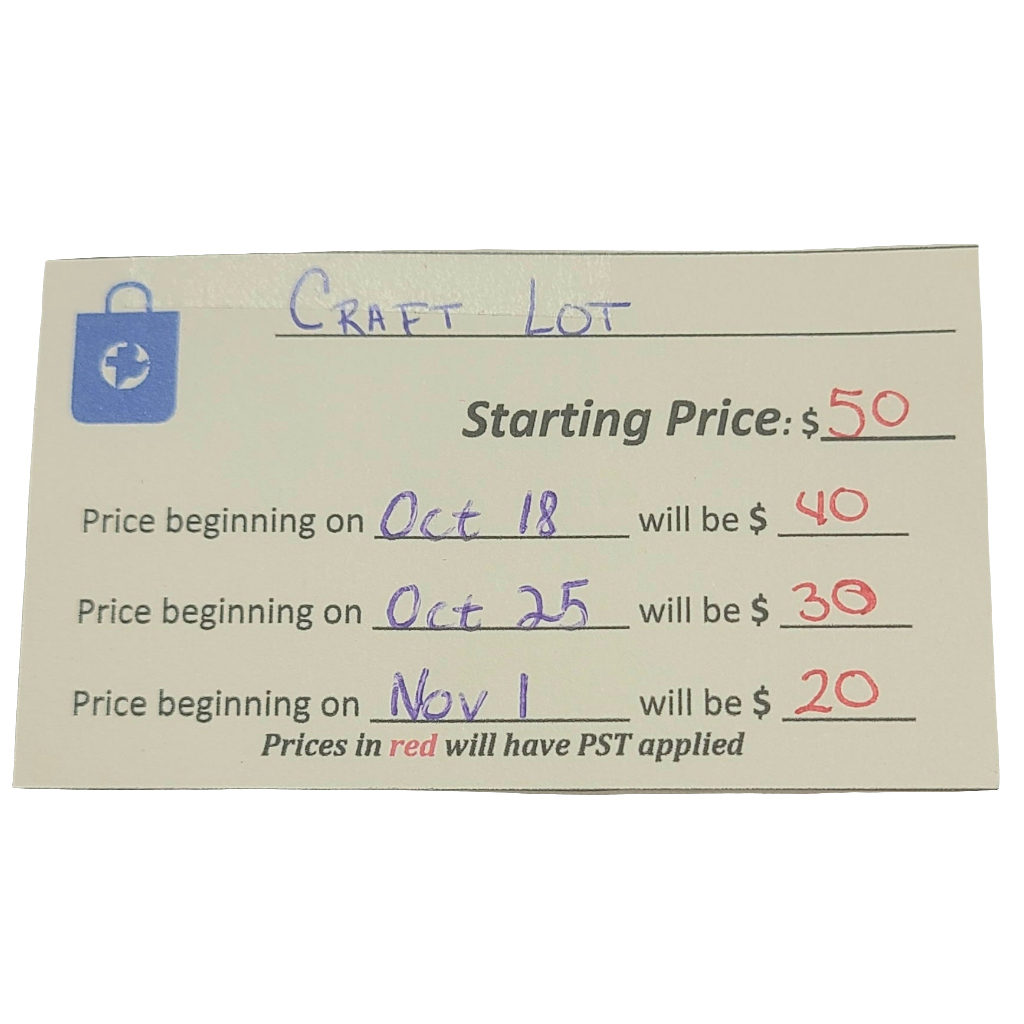 CRAFT LOT
Starting Price: $50
Price beginning on Oct 18 will be $ 40
Price beginning on Oct 25 will be $ 30
Price beginning on Nov 1 will be $ 20
Prices in red will have PST applied